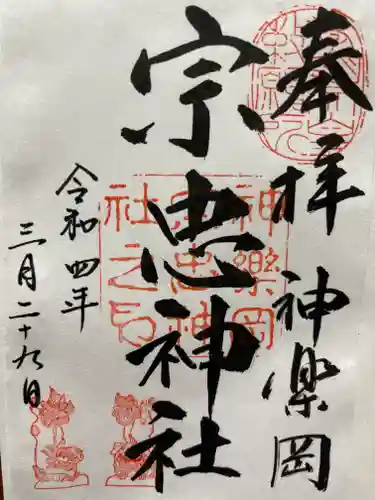 奉拝 神楽岡
宗忠神社
令和四年
三月二十九日
神樂岡
宗忠神
社之印